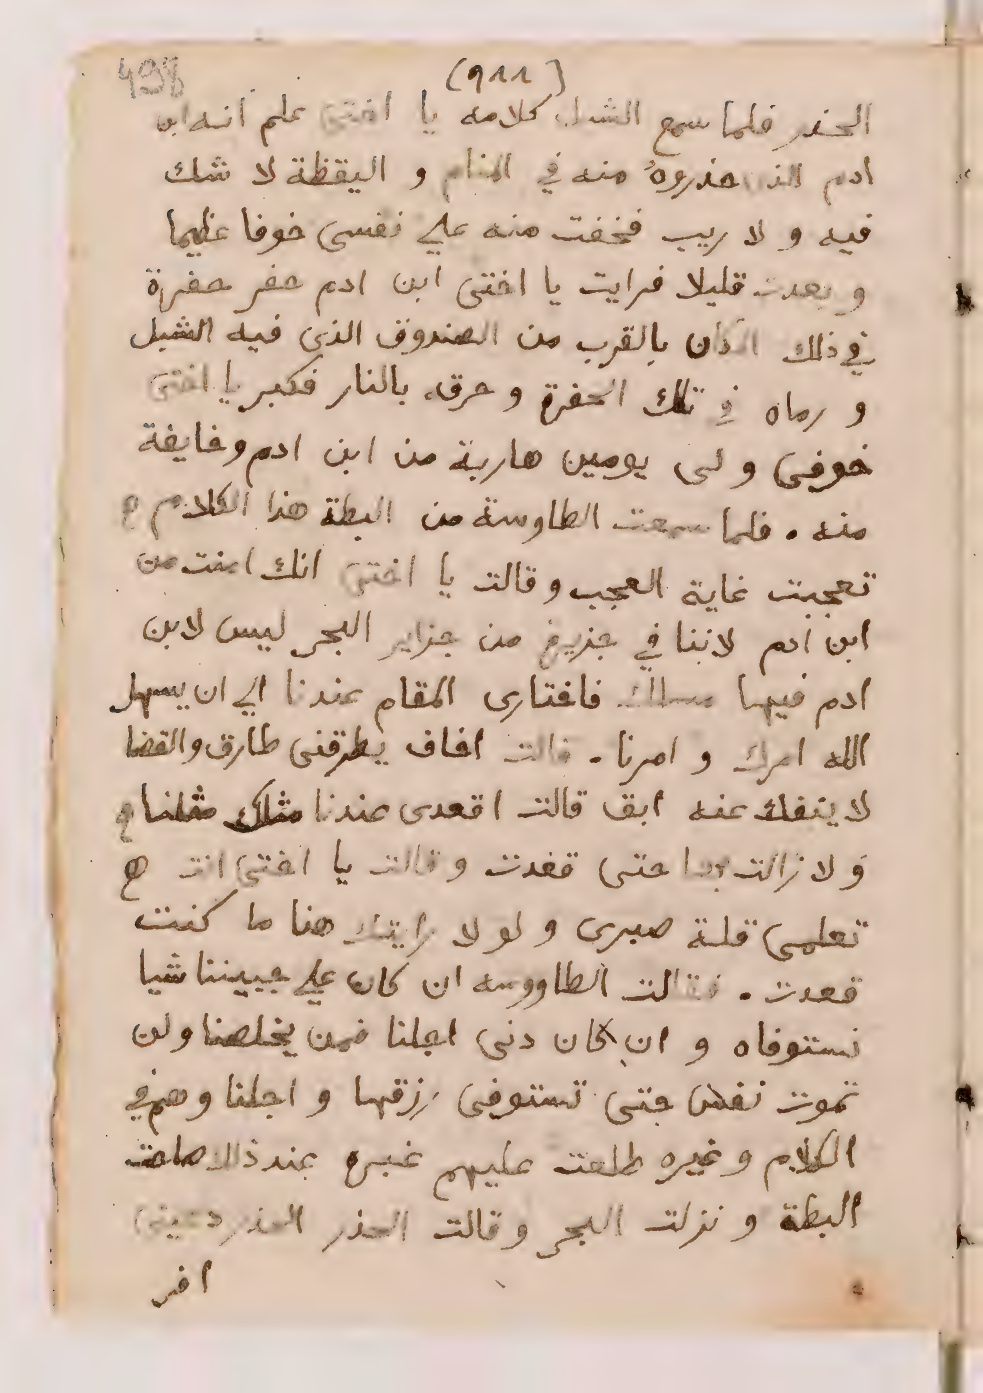 498
(٩١١)
الحذر فلما سمع الشبل كلامه يا اختى علم انه ابن
ادم الذى حذروه منه في المنام و اليقظة لا شك
فيه و لا ريب فخفت منه علي نفسى خوفا عظيما
و بعدت قليلا فرايت يا اختى ابن ادم حفر حفرة
في ذلك المكان بالقرب من الصندوق الذى فيه الشبل
و رماه في تلك الحفرة و حرقه بالنار فكبر يا اختى
خوفى و لى يومين هاربة من ابن ادم و خايفة
منه . فلما سمعت الطاوسة من البطة هذا الكلام
تعجبت غاية العجب و قالت يا اختى انك امنت من
ابن ادم لاننا في جزيرة من جزاير البحر ليس لابن
ادم فيها مسلك فاختارى المقام عندنا الي ان يسهل
الله امرك و امرنا . قالت اخاف يطرقنى طارق والقضا
لا ينفك عنه ابق قالت اقعدى عندنا مثلك مثلنا
و لا زالت بها حتى قعدت و قالت يا اختى انت
تعلمى قلة صبرى و لو لا رايتك هنا ما كنت
قعدت . فقالت الطاووسه ان كان علي جبيننا شيا
نستوفاه و ان كان دنى اجلنا فمن يخلصنا و لن
تموت نفس حتى تستوفى رزقها و اجلنا و هم في
الكلام و غيره طلعت عليهم غبرة عند ذلك صاحت
البطة و نزلت البحر و قالت الحذر الحذر دعينى
افر